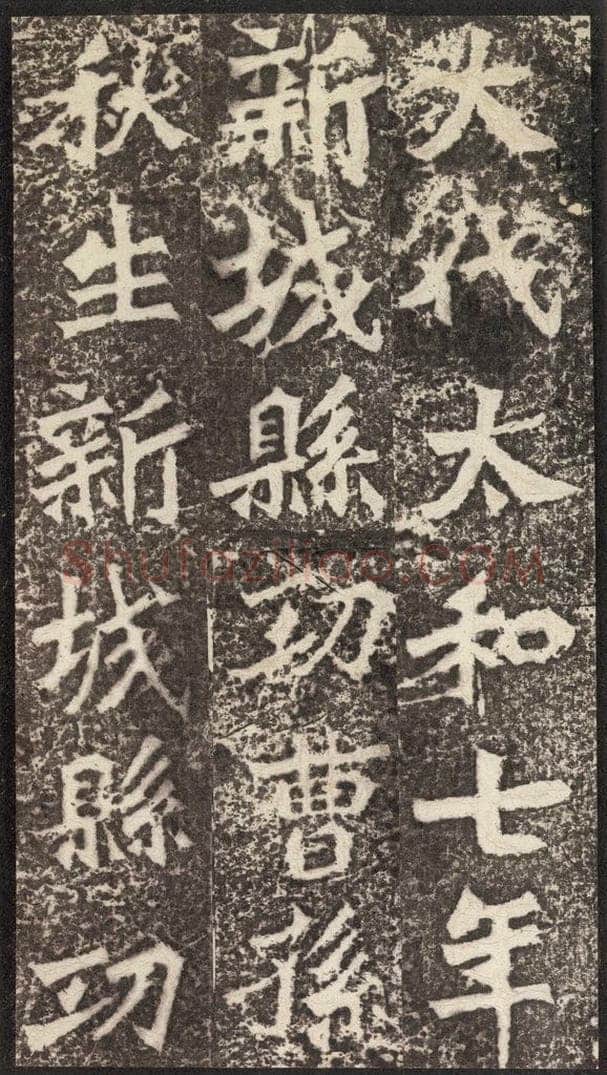 大代太和七年
新城縣功曹孫
秋生新城縣功
Shufaziliao.COM